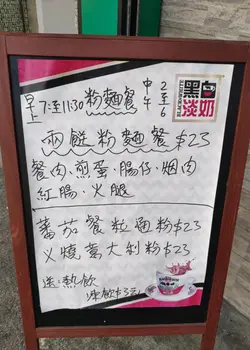 早上7:至11:30粉麵餐 中午2至6
黑白淡奶
BLACK&WHITE
兩餸粉麵餐$23
餐肉、煎蛋、腸仔、烟肉
紅腸、火腿
蕃茄餐粒通粉$23
义燒意大利粉$23
送熱飲
凍飲加$3元